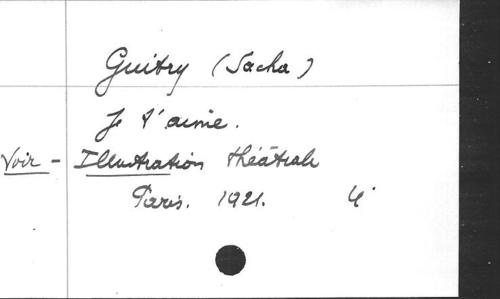 Guitry (Sacha)
Je t'aime.
Voir - Illustration théâtrale
Paris. 1921. 4°